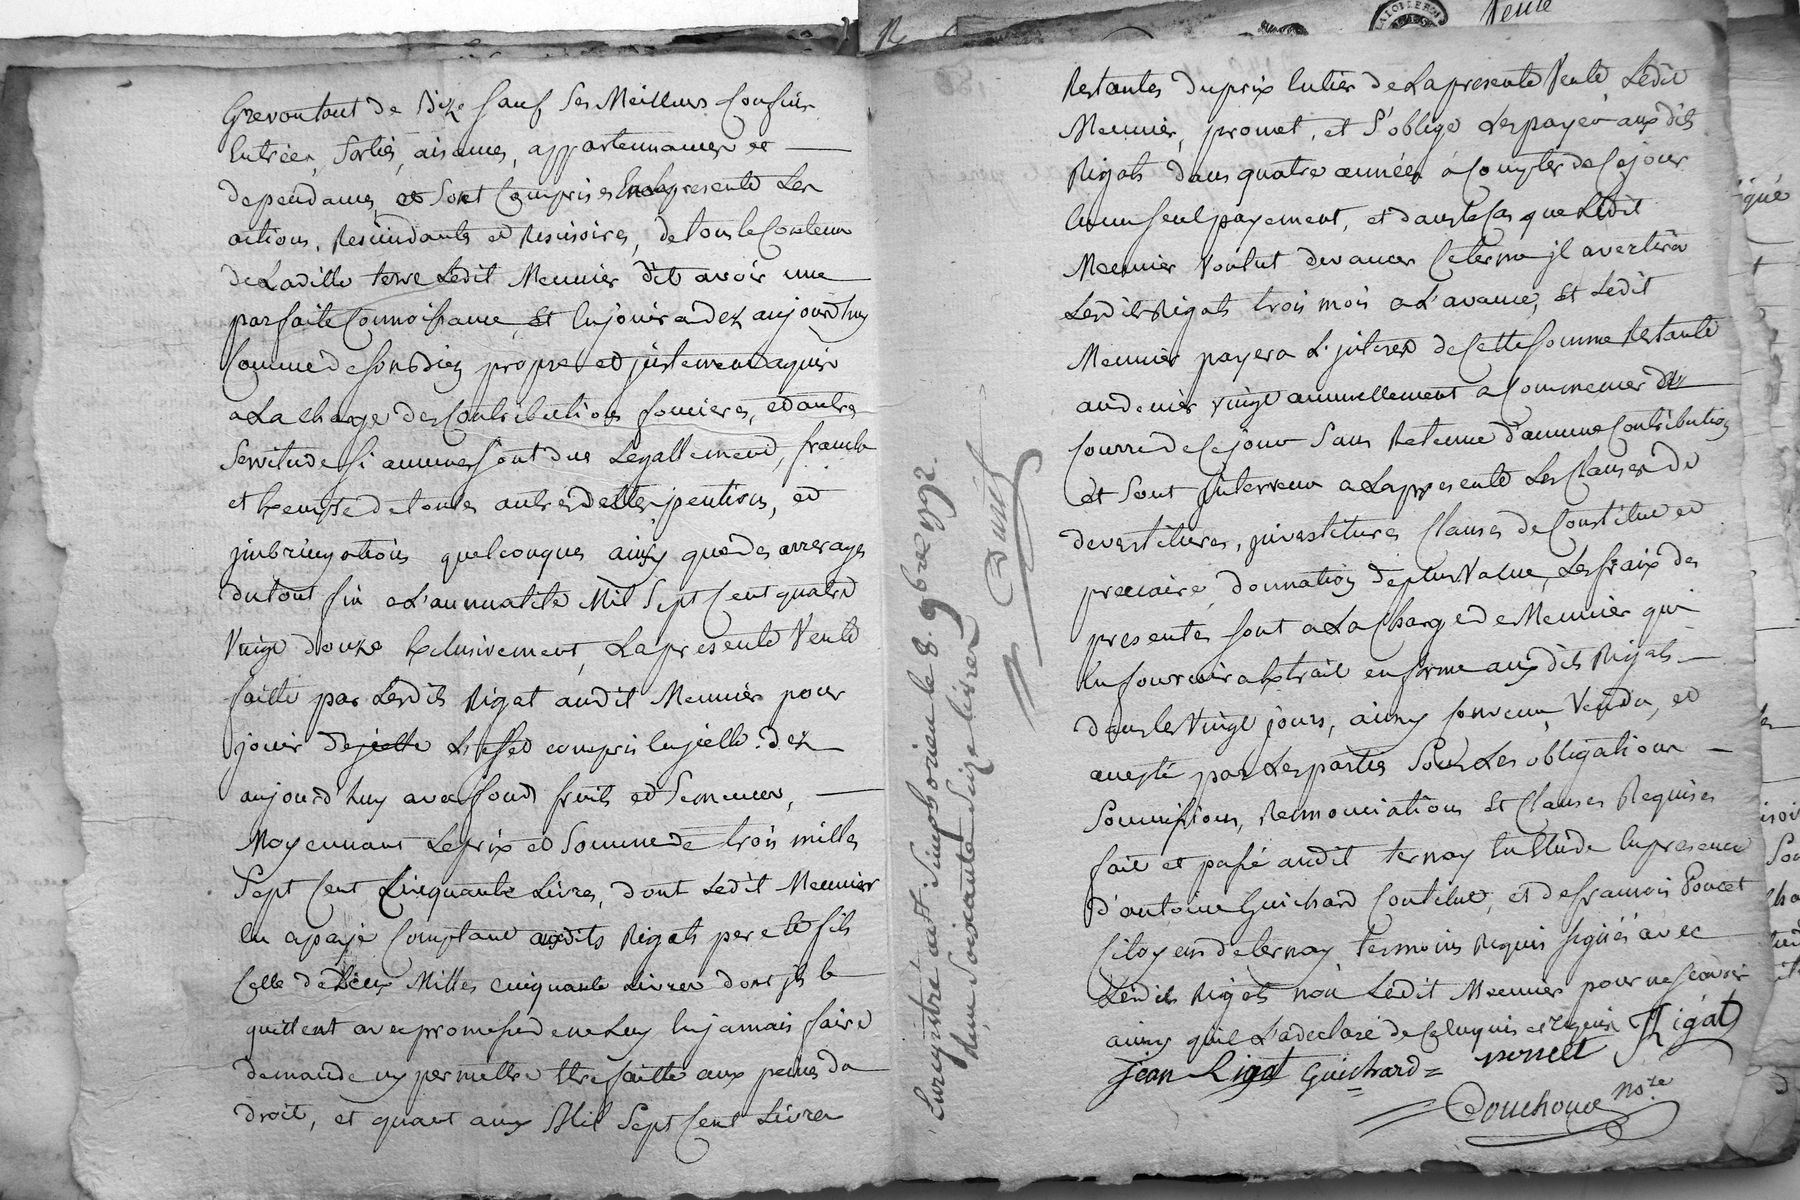 de Bize sauf ses Meilleurs Confins
Entrées, sorties, aisances, appartennances et
dependances, et sont Comprises En la presente Les
actions, Rescindants et Rescisoires, de tout le Contenu
de Laditte terre Ledit Meunier dit avoir une
parfaite Connoissance Et En jouira dez aujourd'huy
Comme de son bien propre et justement aquis
a La charge des Contributions foncieres, et autres
servitudes si aucunes sont dues Legallement, franche
et Exempte de toutes autres dettes pentions, et
jmbringations quelconques ainsy que des arrerages
du tout fin a L'annualité Mil Sept Cent quatre
Vingt douze Exclusivement, La presente Vente
faitte par Lesdits Rigat audit Meunier pour
jouir de jcelle L'effet compris En jcelle dez
aujourd'huy avec fond fruits et semences,
Moyennant Le prix et Somme de trois milles
Sept Cent Cinquante Livres, dont Ledit Meunier
En a payé Comptant auxdits Rigats pere et fils
Celle de Deux Milles cinquante Livres dont jls le
quittent avec promesse de ne Luy En jamais faire
demande ny permettre Etre faitte aux peines du
droit, et quant aux Mil Sept Cent Livres
Enregistré a St. Simphorien le 8. 9bre 1792.
Reçu Soixante Seize livres
Restantes du prix Entier de La presente Vente, Ledit
Meunier, promet, et S'oblige Les payer aux dits
Rigats dans quatre années a Compter de Ce jour
En un seul payement, et dans le Cas que Ledit
Meunier Voulut devancer Ce terme jl avertira
Lesdits Rigats trois mois a L'avance, Et Ledit
Meunier payera L'jnteret de Cette Somme Restante
au denier vingt annuellement a Commencer de
Courre de Ce jour Sans Retenue d'aucune Contribution
Et Sont jntervenu a La presente Les Clauses de
devestitures, jnvestitures Clauses de Constitut et
precaire, donnation de plus Value, Les fraix des
presentes sont a La Charge de Meunier qui
En fournira Extrait en forme aux dits Rigats
dans les Vingt jours, ainsy convenu, Vendu, et
accepté par Les parties Sous Les obligations
Soumissions, Rennonciations Et Clauses Requises
fait et passé audit ternay En Etude En presence
d'antoine Guichard, et de francois Poncet
Citoyens de ternay temoins Requis signés avec
Lesdits Rigats non Ledit Meunier pour ne scavoir
ainsy qu'il L'a declaré de Ce Enquis et Requis Rigat
Jean Rigat Guichard ponset
Douchoue no.re